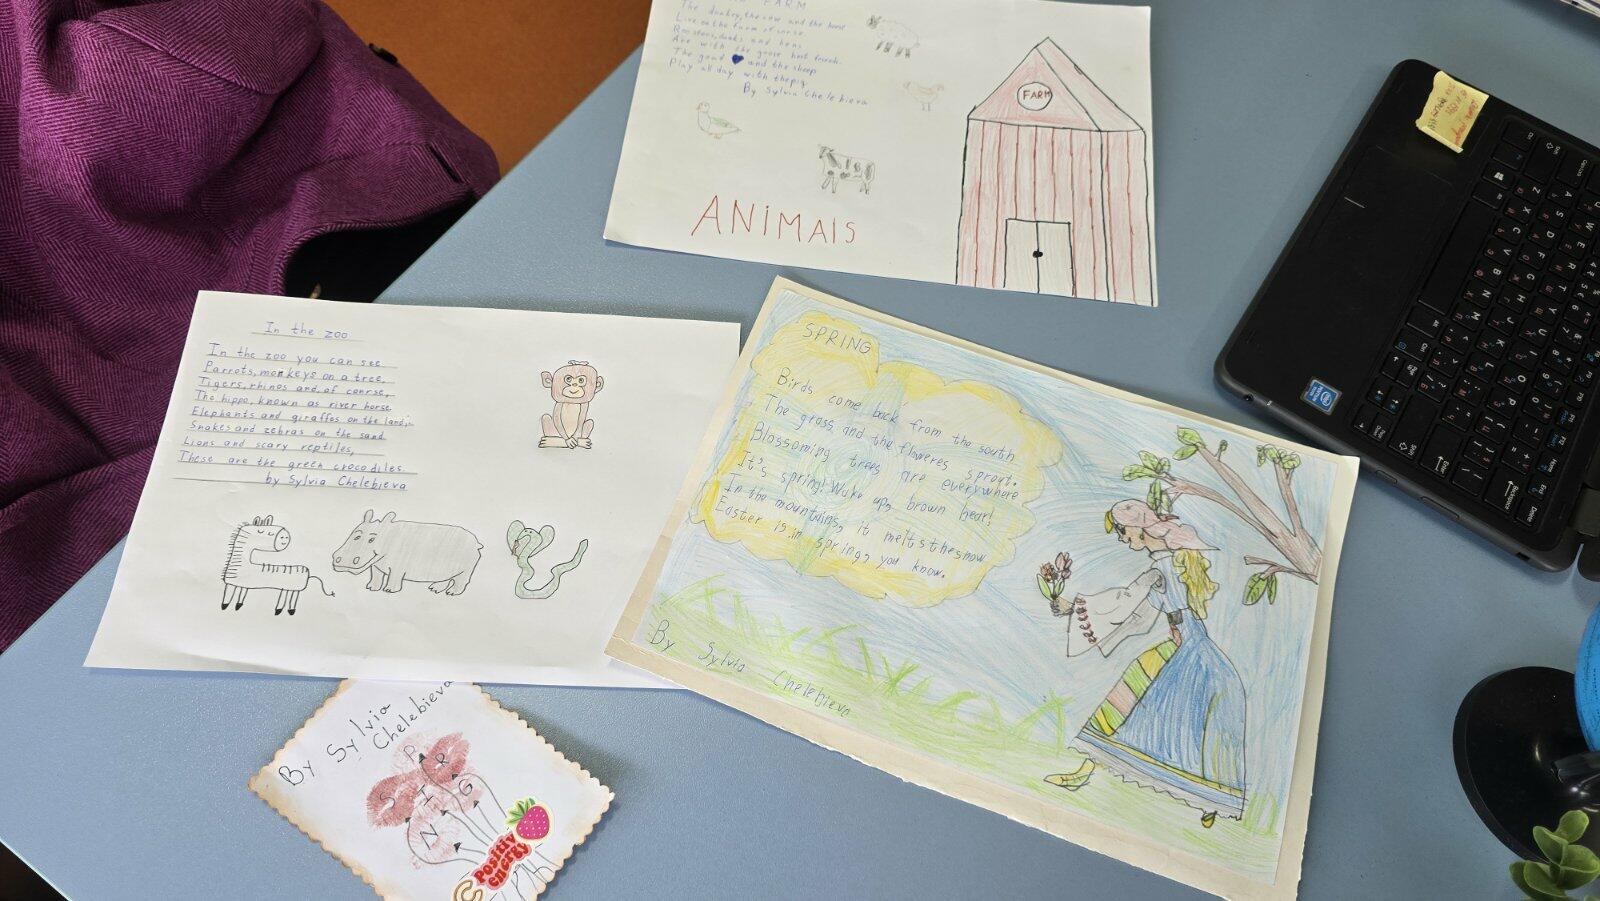 FARM
The donkey, the cow and the horse
Live on the farm of corse.
Roosters, ducks and hens
Are with the goose best friends.
The goat and the sheep
Play all day with the pig
By Sylvia Chelebieva
FARM
ANIMAlS
In the zoo
In the zoo you can see
Parrots, monkeys on a tree,
Tigers, rhinos and of conrse,
The hippo, known as river horse
Elephants and giraffes on the land,
Snakes and zebras on the sand
Lions and scary reptiles,
These are the green crocodiles.
by Sylvia Chelebieva
SPRING
Birds come back from the south
The grass and the floweres sprout.
Blossoming trees are everywhere
It's spring! Wake up, brown bear!
In the mountains, it meltsthesnow
Easter is in spring, you know.
By Sylvia Chelebieva
By Sylvia Chelebieva
SPRING
Positiv
energy